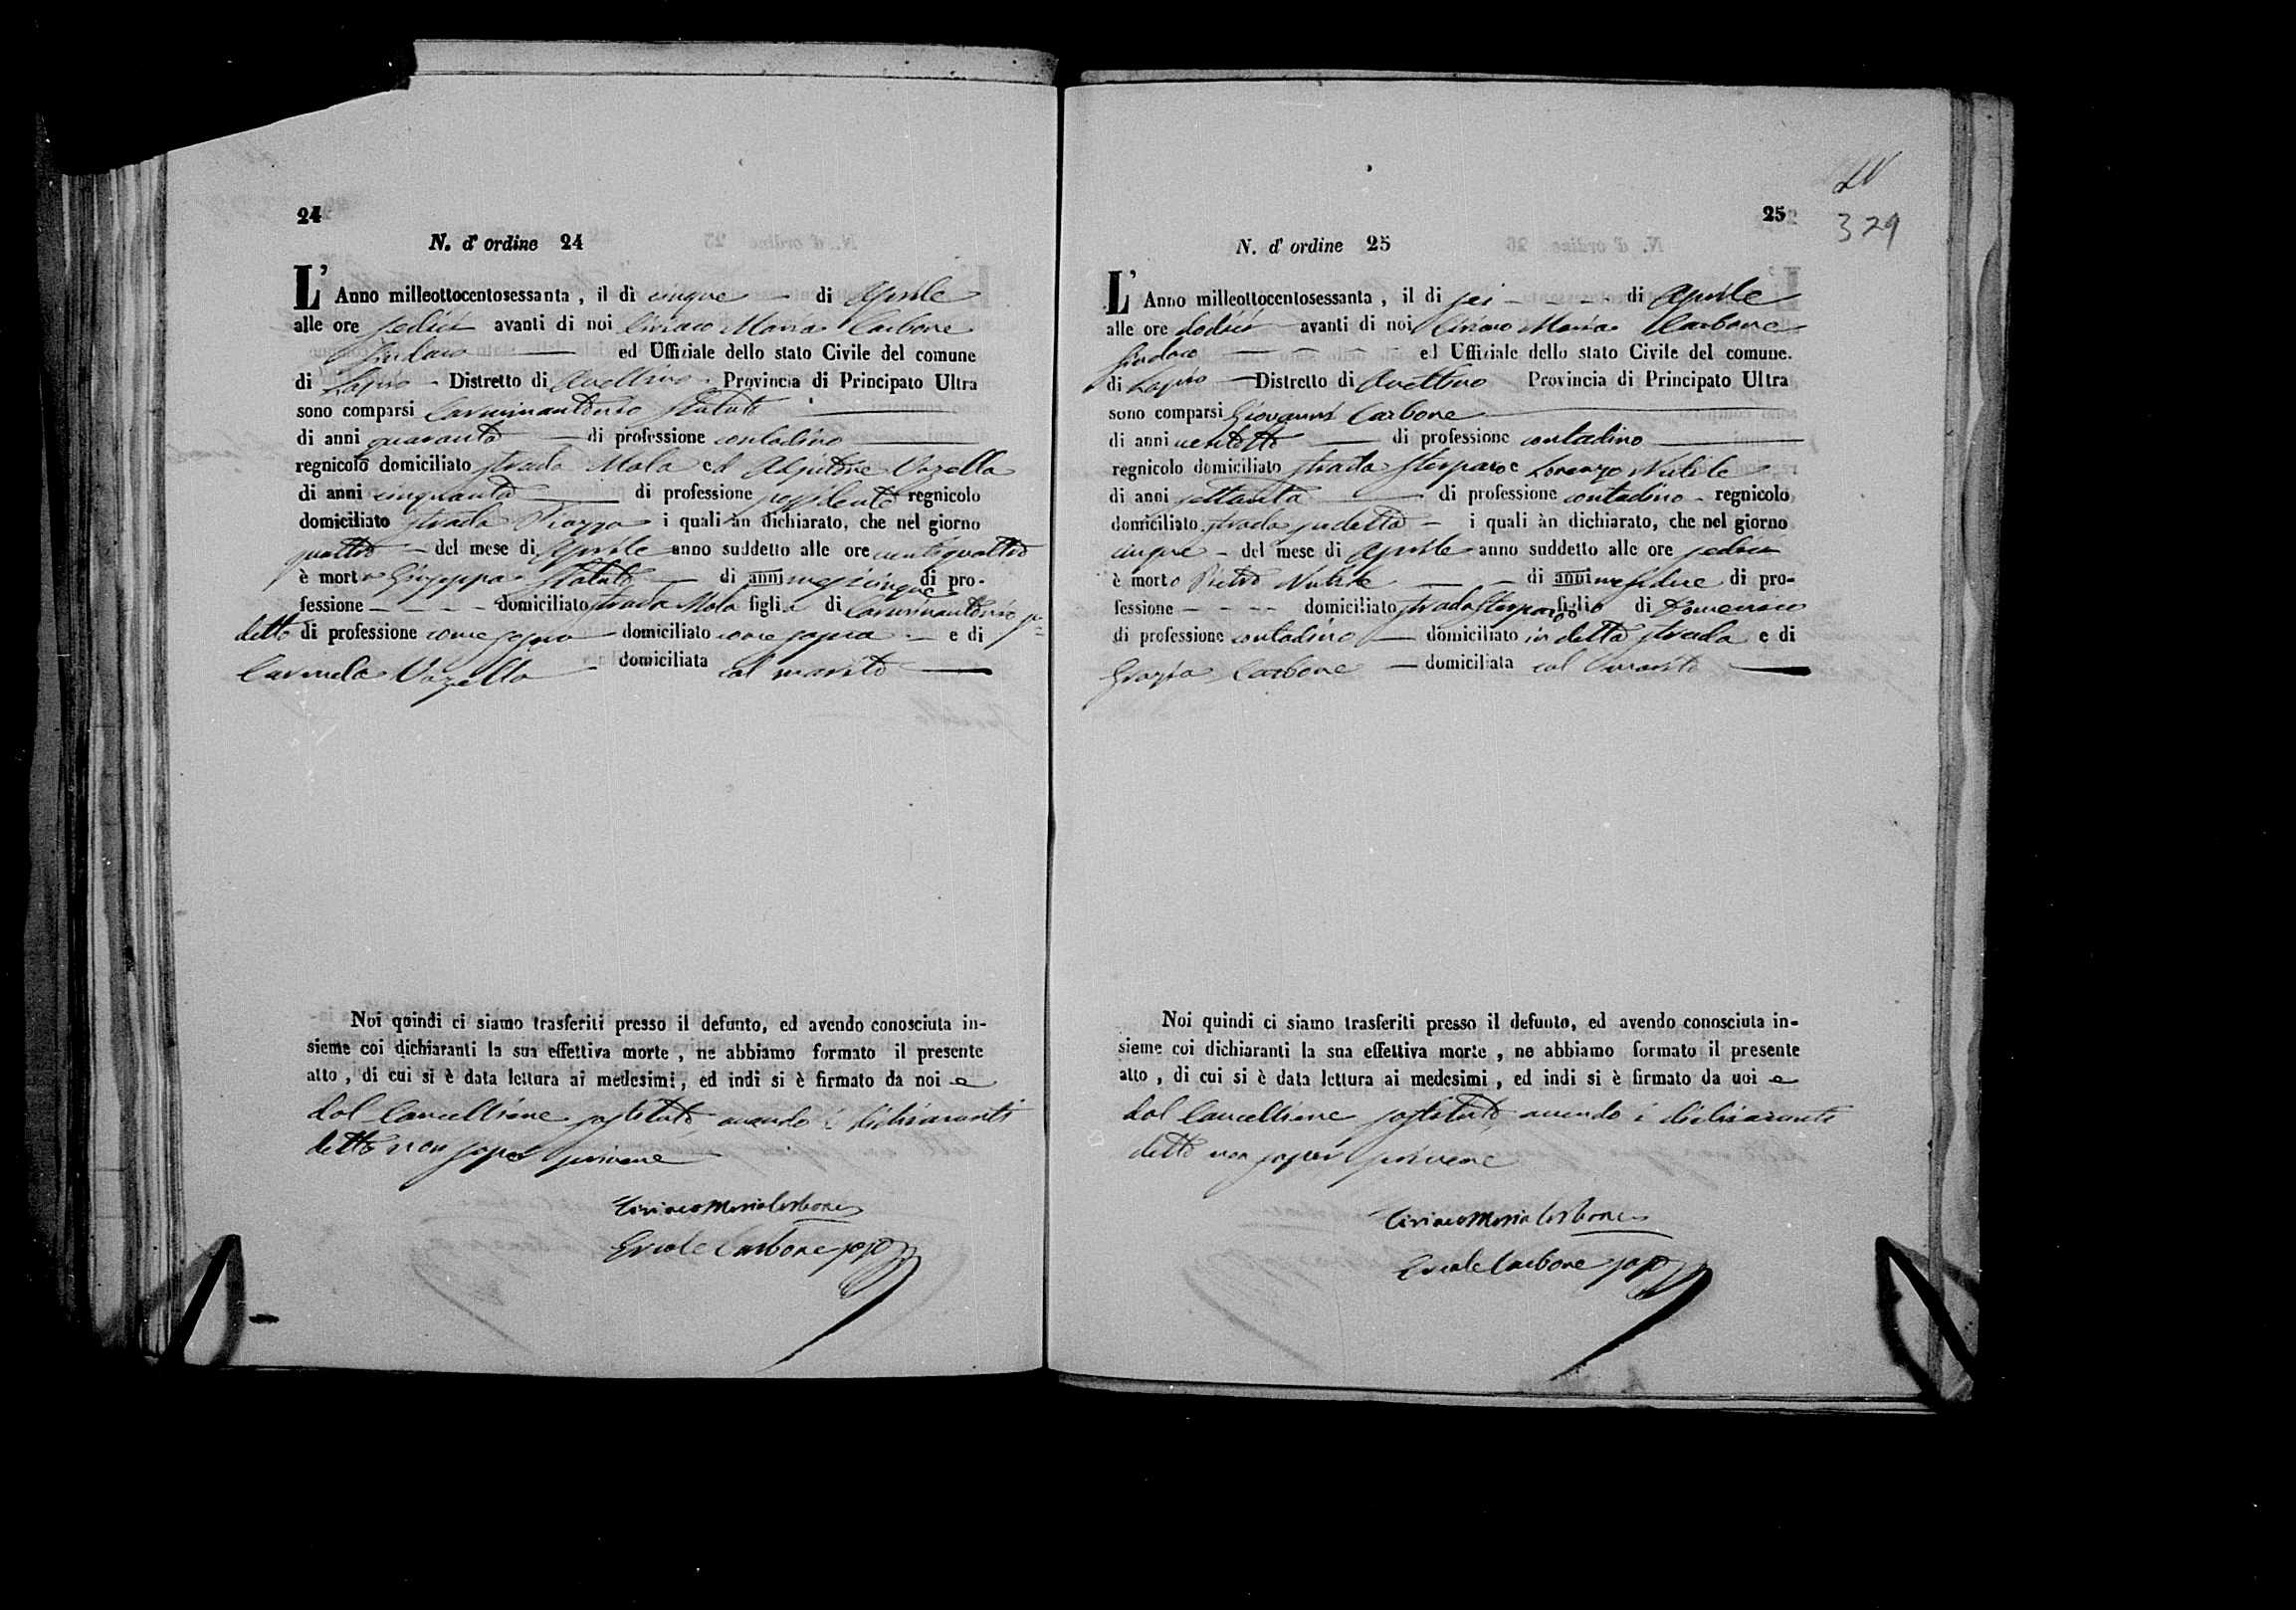 24
N. d' ordine 24
L' Anno milleottocentosessanta , il dì cinque - di Aprile
alle ore sedici avanti di noi Ciriaco Maria Carbone
Sindaco ed Uffiziale dello stato Civile del comune
di Lapio - Distretto di Avellino - Provincia di Principato Ultra
sono comparsi Carminantonio Statuto
di anni quaranta di professione contadino
regnicolo domiciliato strada Mola ed Vazella
di anni cinquanta di professione possidente regnicolo
domiciliato strada Piazza i quali àn dichiarato, che nel giorno
quattro - del mese di Aprile anno suddetto alle ore ventiquattro
è morta Giuseppa Statuto di anni mesi cinque di pro-
fessione - - - - domiciliato strada Mola figlia di Carminantonio su=
detto di professione come sopra domiciliato come sopra - e di
Carmela Vazella domiciliata col marito
Noi quindi ci siamo trasferiti presso il defunto, ed avendo conosciuta in-
sieme coi dichiaranti la sua effettiva morte , ne abbiamo formato il presente
atto , di cui si è data lettura ai medesimi, ed indi si è firmato da noi e
dal Cancelliere sostituto, avendo i dichiaranti
detto non saper scrivere
Ciriaco Maria Carbone
Ercole Carbone sosto
25
329
N. d' ordine 25
L' Anno milleottocentosessanta , il di sei - - - - di Aprile
alle ore dodici avanti di noi Ciriaco Maria Carbone
Sindaco - - - - ed Uffiziale dello stato Civile del comune.
di Lapio Distretto di Avellino Provincia di Principato Ultra
sono comparsi Giovanni Carbone
di anni ventotto di professione contadino
regnicolo domiciliato strada Sterparo e Lorenzo Nutile
di anni settanta di professione contadino - regnicolo
domiciliato strada sudetta - i quali àn dichiarato, che nel giorno
cinque - del mese di Aprile anno suddetto alle ore sedici
è morto Pietro Nutile - di anni mesi dieci di pro-
fessione - - - - domiciliato strada Sterparo figlio di Domenico
di professione contadino domiciliato in detta strada e di
Grazia Carbone domiciliata col marito
Noi quindi ci siamo trasferiti presso il defunto, ed avendo conosciuta in-
sieme coi dichiaranti la sua effettiva morte , ne abbiamo formato il presente
atto , di cui si è data lettura ai medesimi , ed indi si è firmato da noi e
dal Cancelliere sostituto, avendo i dichiaranti
detto non saper scrivere
Ciriaco Maria Carbone
Ercole Carbone sosto